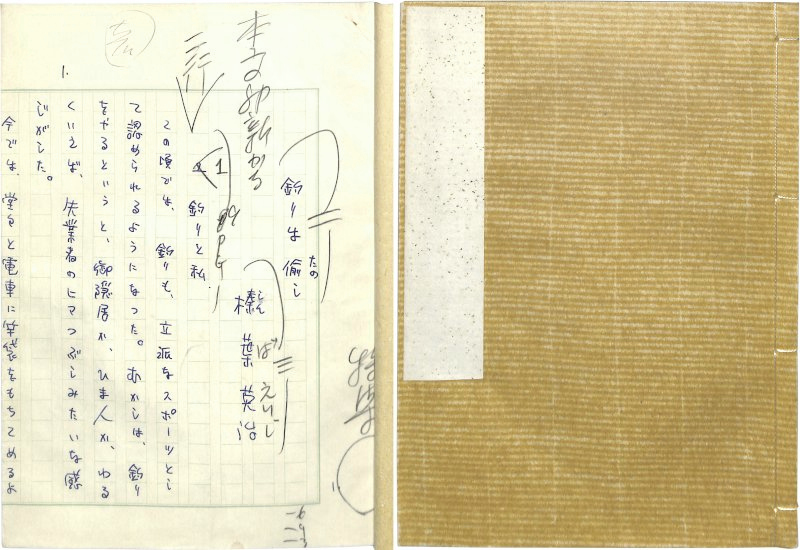 釣りは偷し
たの
榛葉英治
しん ば えいじ
三行
1
釣りと私
1.
この頃では、釣りも、立派なスポーツとし
て認められるようになつた。むかしは、釣り
をやるというと、御隠居か、ひま人か、わる
くいえば、失業者のヒマつぶしみたいな感
じがした。
今では、堂々と電車に竿袋をもちこめるよ